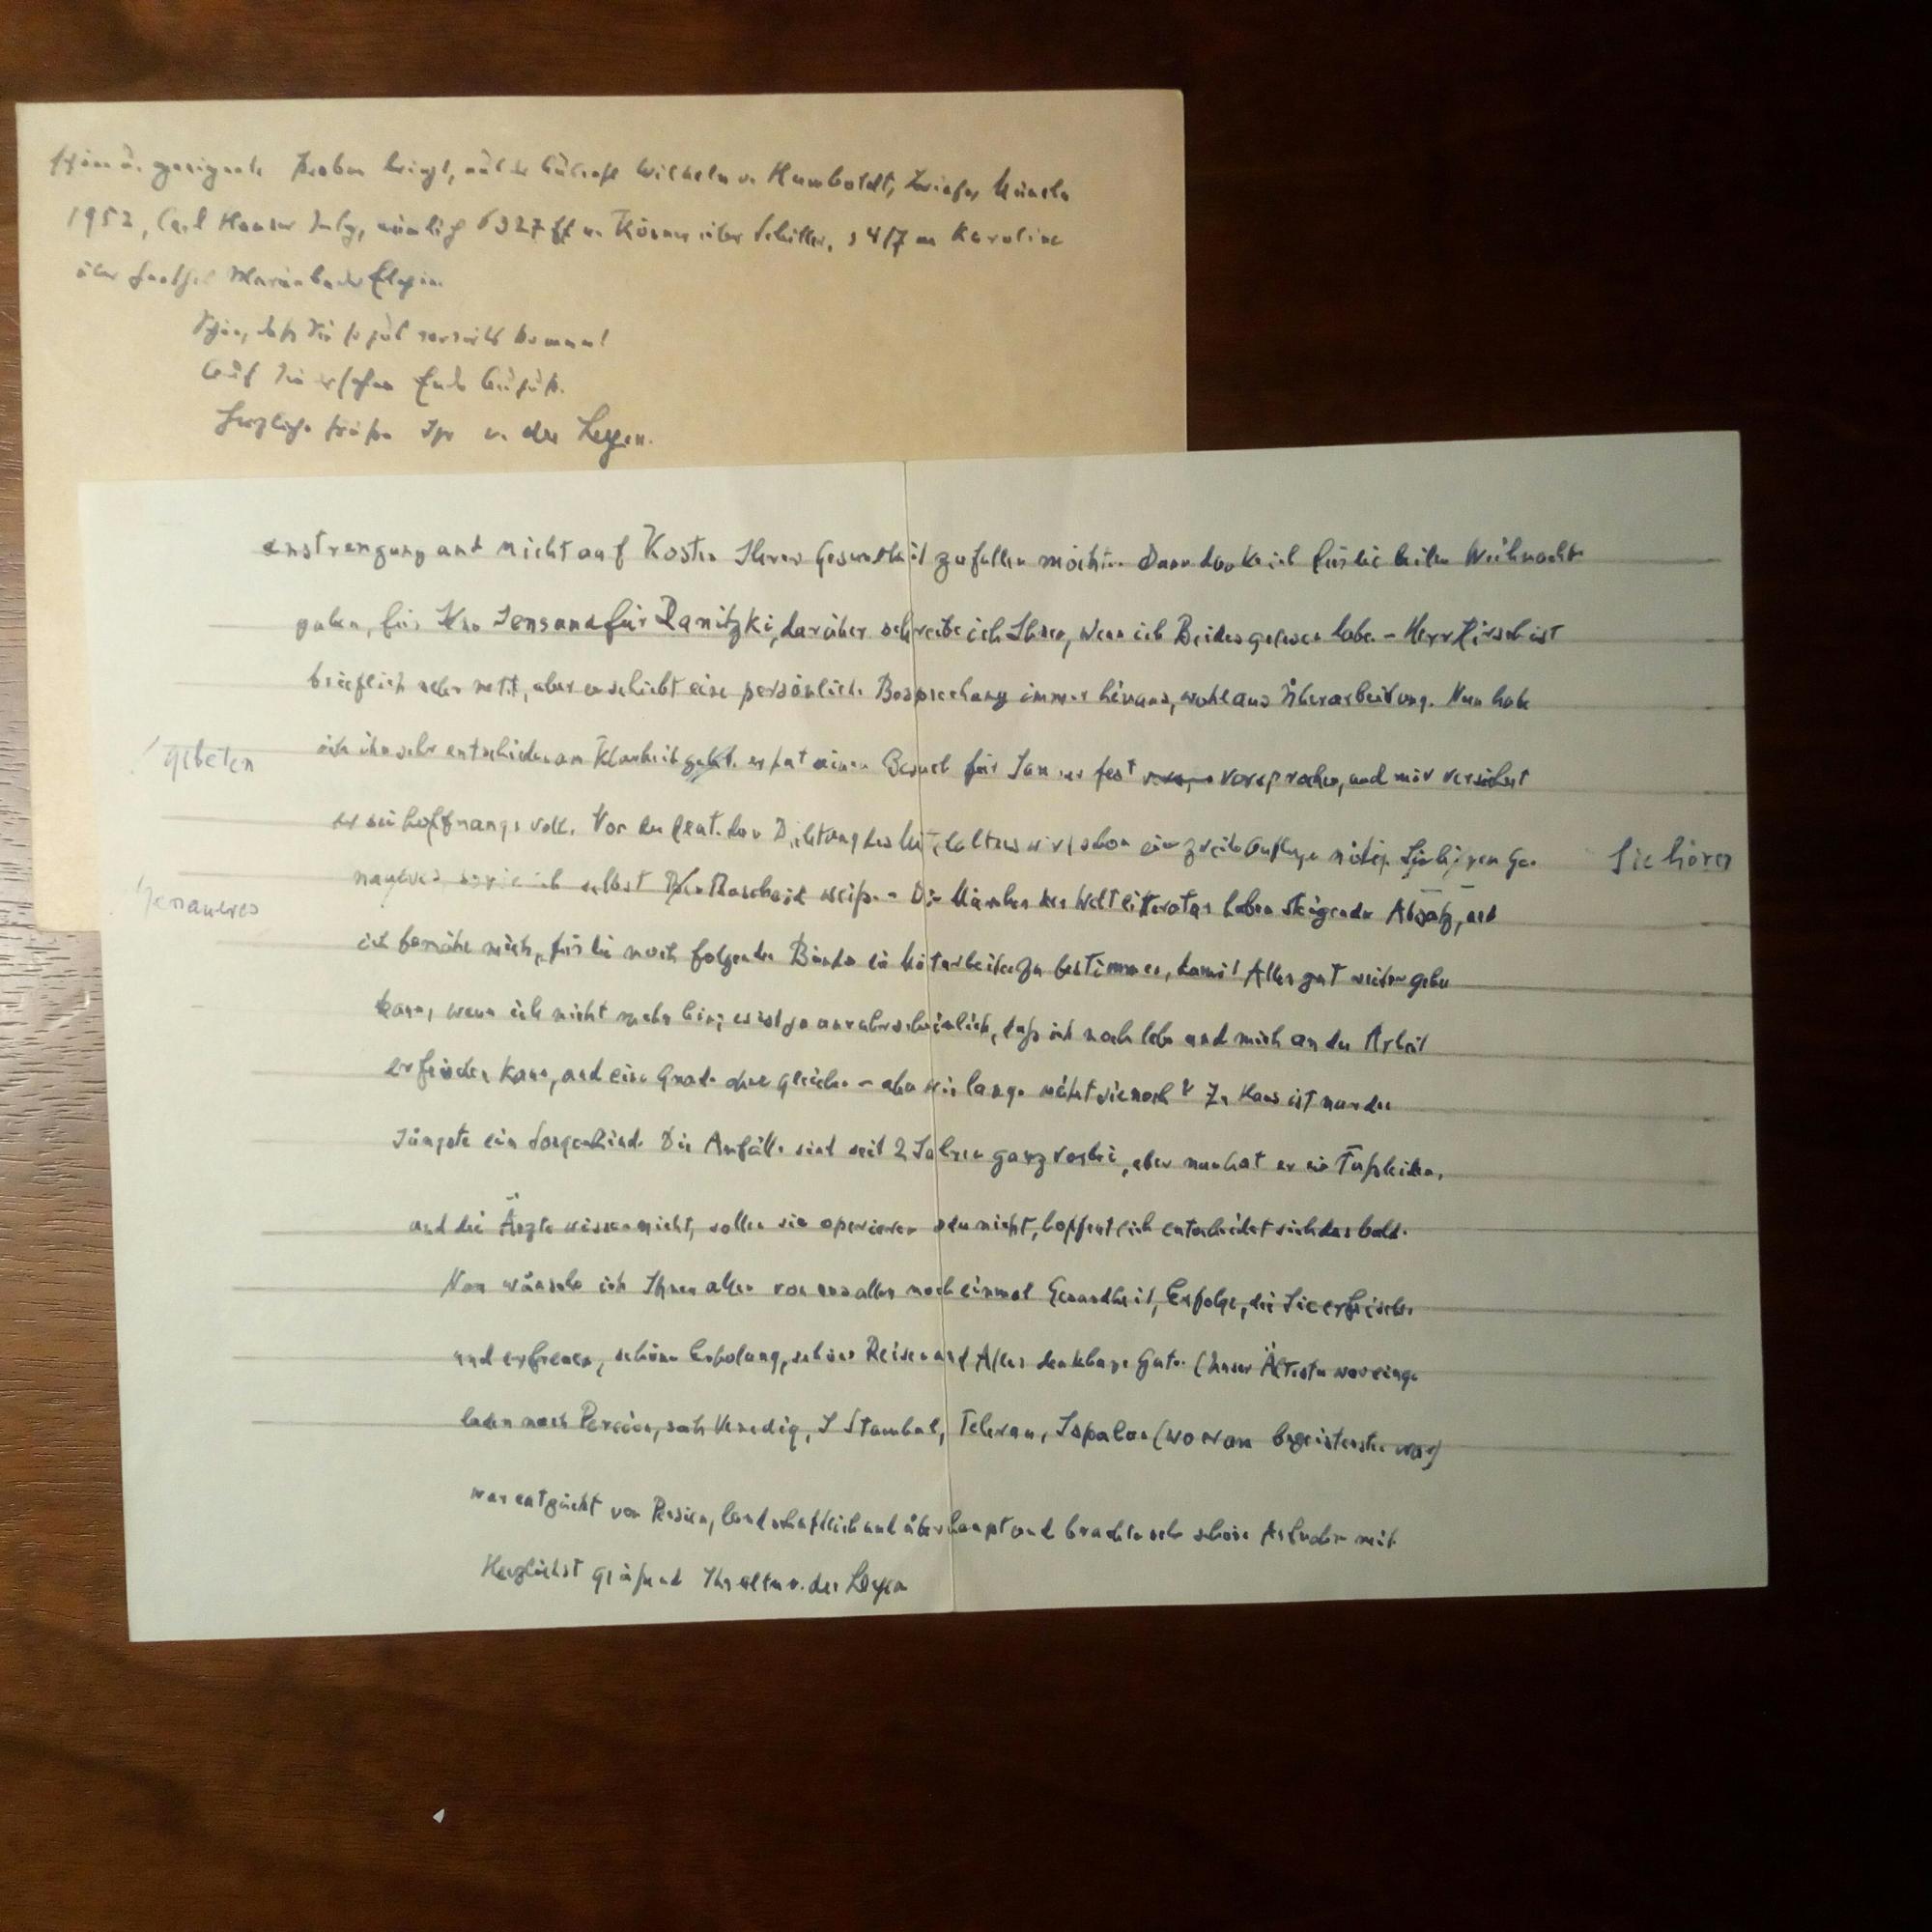 schön u. geeignete Proben bringt, Wilhelm v. Humboldt, Briefe, München
1952, Carl Hanser Verlag, nämlich S 327 ff an Körner über Schiller, S 417 an Karoline
über Goethes Marienbader Elegie.
Schön, daß Sie so gut vorwärts kommen!
Auf Wiedersehen Ende August.
Herzliche Grüße Ihr v. der Leyen.
anstrengung und nicht auf Kosten Ihrer Gesundheit zufallen möchten. Dann danke ich für die beiden Weihnachts
gaben, für Jens und für Ranitzki, darüber schreibe ich Ihnen, wenn ich Beides gelesen habe. – Herr Hirsch ist
brieflich sehr nett, aber er schiebt eine persönliche Besprechung immer hinaus, wohl aus Überarbeitung. Nun habe
ich ihn sehr entschieden um Klarheit er hat einen Besuch für Januar fest versprochen, und mir versichert
gebeten
er sei hoffnungsvoll. Von der deut. Dichtung des Mittelalters wird schon eine zweite Auflage nötig. Ge-
Sie hören
naueres sowie ich selbst Bescheid weiß. – Die Märchen der Weltliteratur haben steigenden Absatz, und
Genaueres
ich bemühe mich, für die noch folgenden Bände die Mitarbeiter zu bestimmen, damit Alles gut weiter gehen
kann, wenn ich nicht mehr bin; es ist ja unwahrscheinlich, daß ich noch lebe und mich an der Arbeit
erfrischen kann, und eine Gnade ohne gleichen – aber wie lange währt sie noch? Zu Haus ist nur der
Jüngste ein Sorgenkind. Die Anfälle sind seit 2 Jahren ganz vorbei, aber nun hat er ein Fußleiden,
und die Ärzte wissen nicht, sollen sie operieren oder nicht, hoffentlich entscheidet sich das bald.
Nun wünsche ich Ihnen allen von uns allen noch einmal Gesundheit, Erfolge, die Sie erfrischen
und erfreuen, schöne Erholung, schöne Reisen und Alles denkbare Gute. (Unser Ältester war einge
laden nach Persien, sah Venedig, Istambul, Teheran, Ispahan (wo er am begeistertsten war)
war entzückt von Persien, landschaftlich und überhaupt und brachte sehr schöne mit.
Herzlichst grüßend Ihr alter v. der Leyen